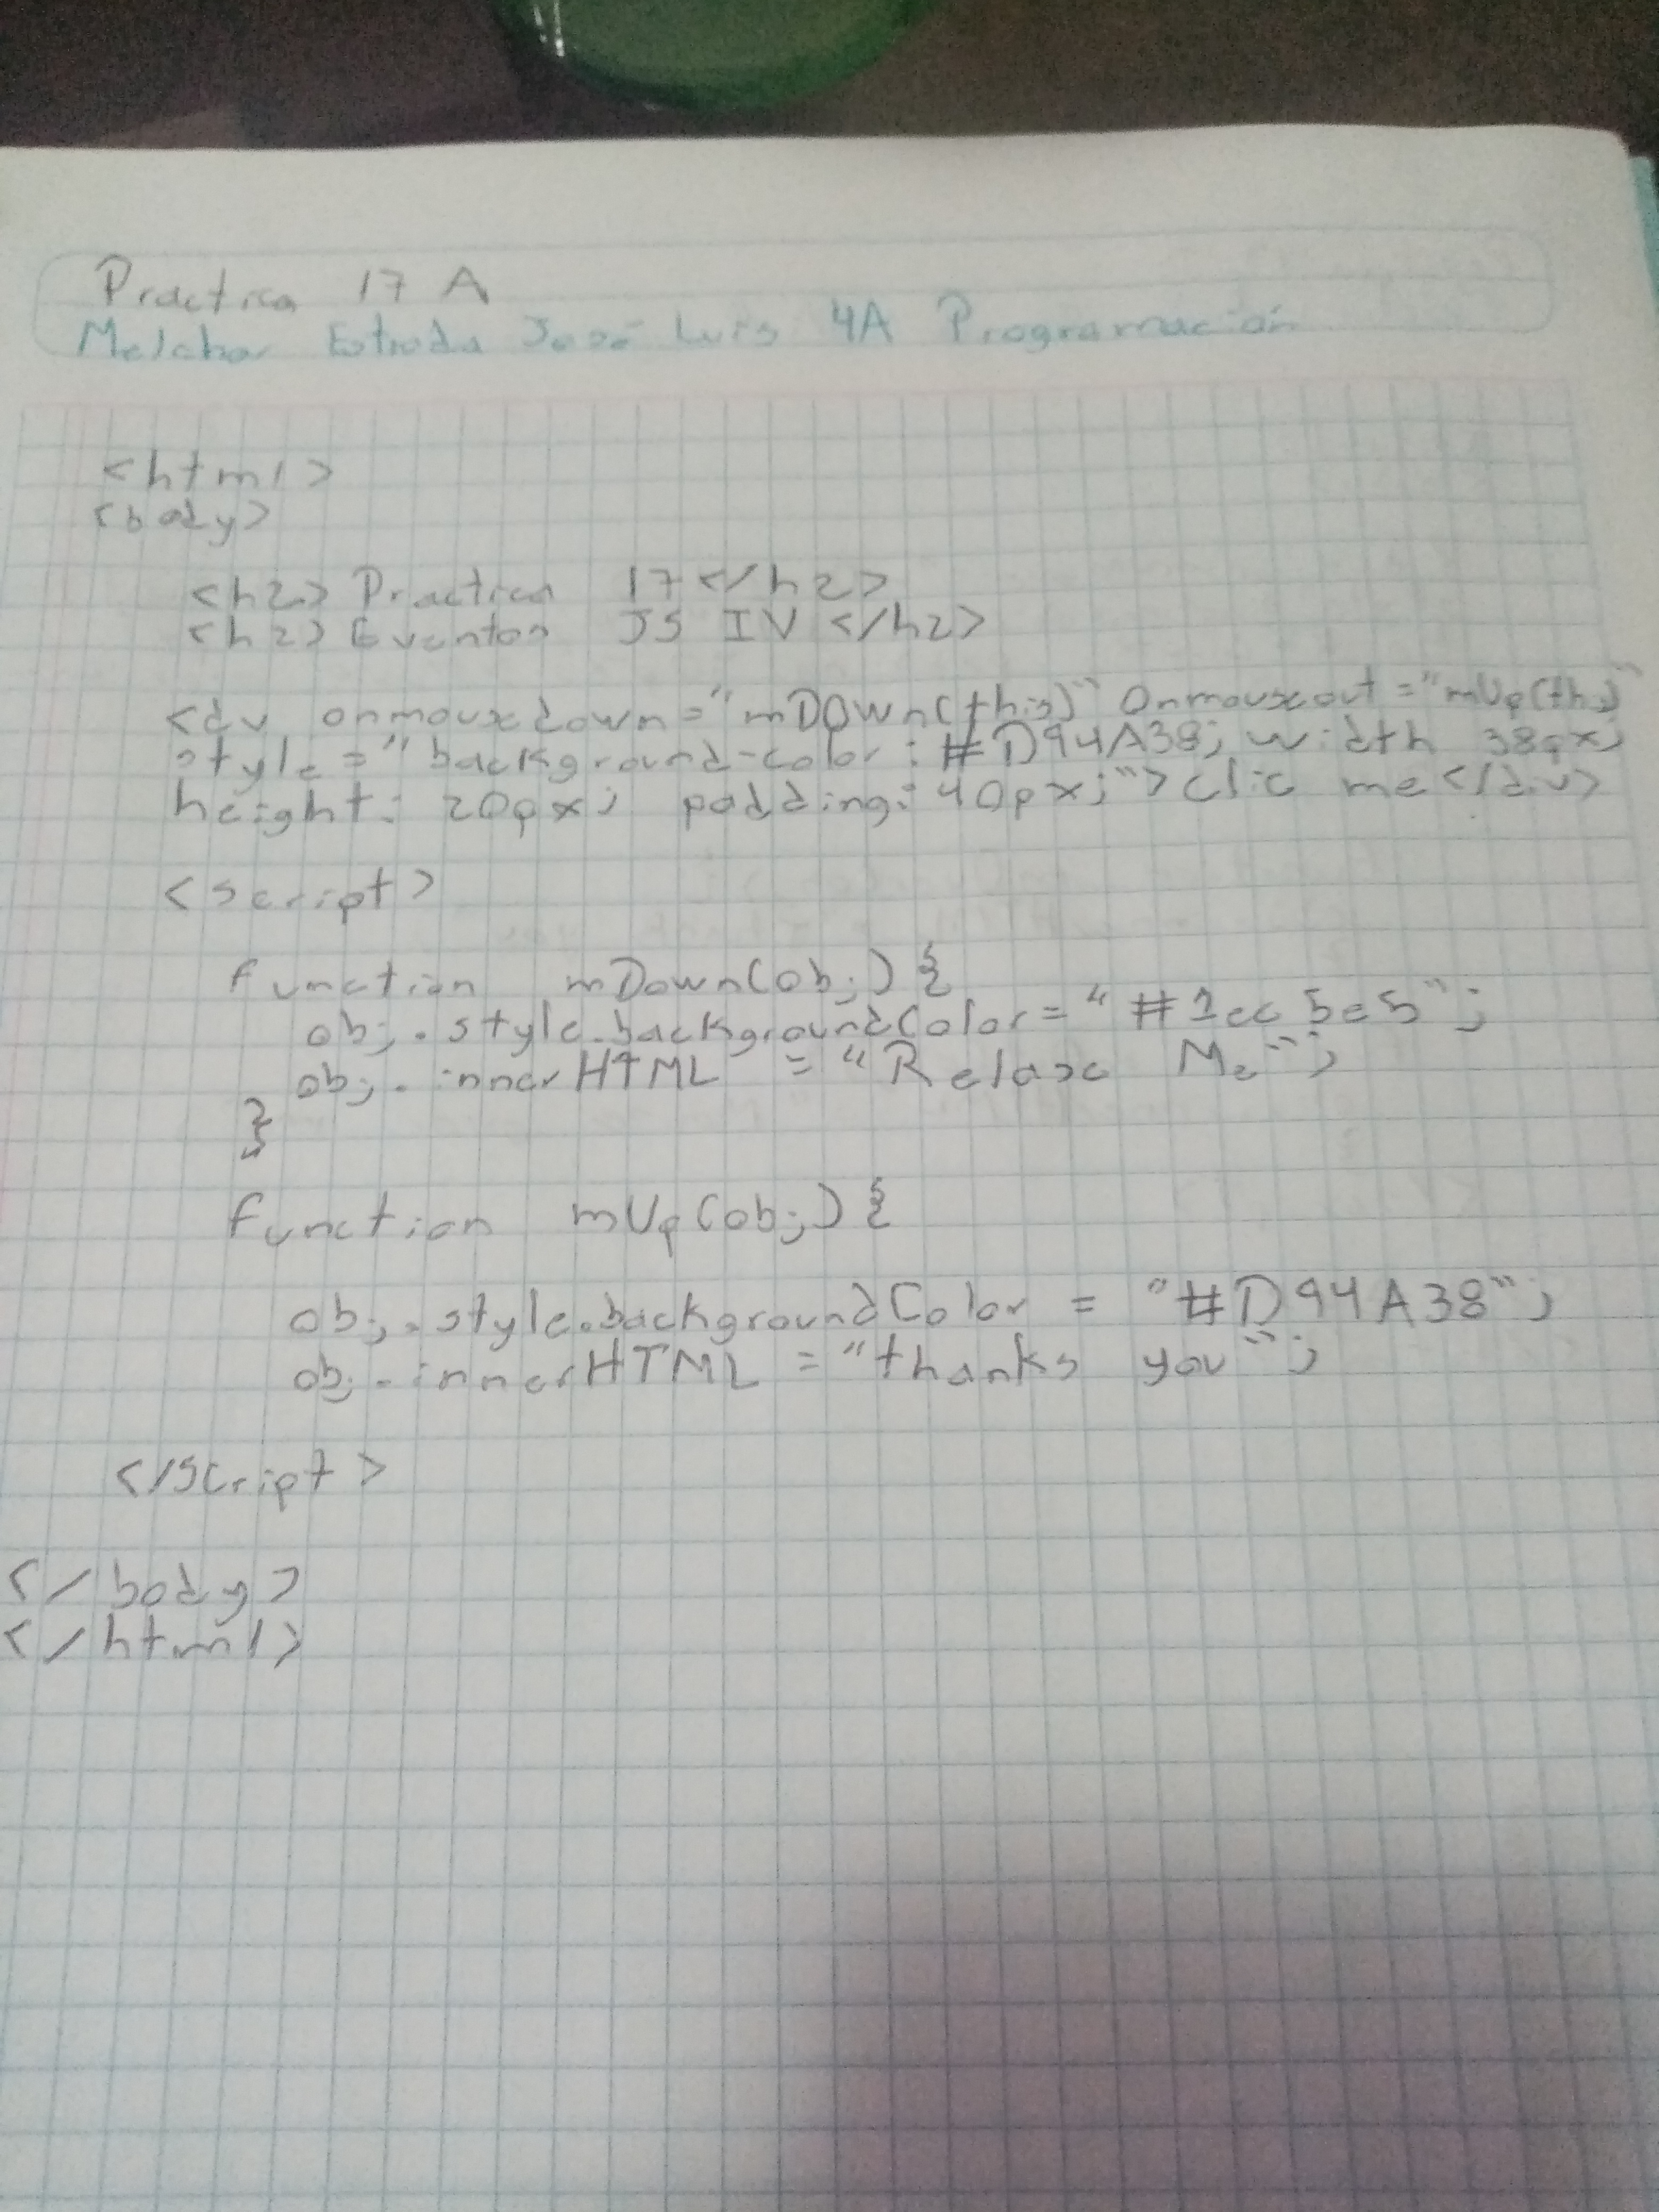 Practica 17 A
Melchor Estrada José Luis 4A Programación
<html>
<body>
<h2> Practica 17 </h2>
<h2> Eventos JS IV </h2>
<div onmousedown="mDOwn(this)" Onmouseout="mUp(this)"
style="background-color:#D94A38; width 38px;
height: 20px; padding: 40px;">clic me</div>
<script>
function mDown(obj) {
obj.style.backgroundColor="#1ec5e5";
obj.innerHTML = "Relase Me";
}
function mUp(obj) {
obj.style.backgroundColor = "#D94A38";
obj.innerHTML = "thanks you";
</script>
</body>
</html>